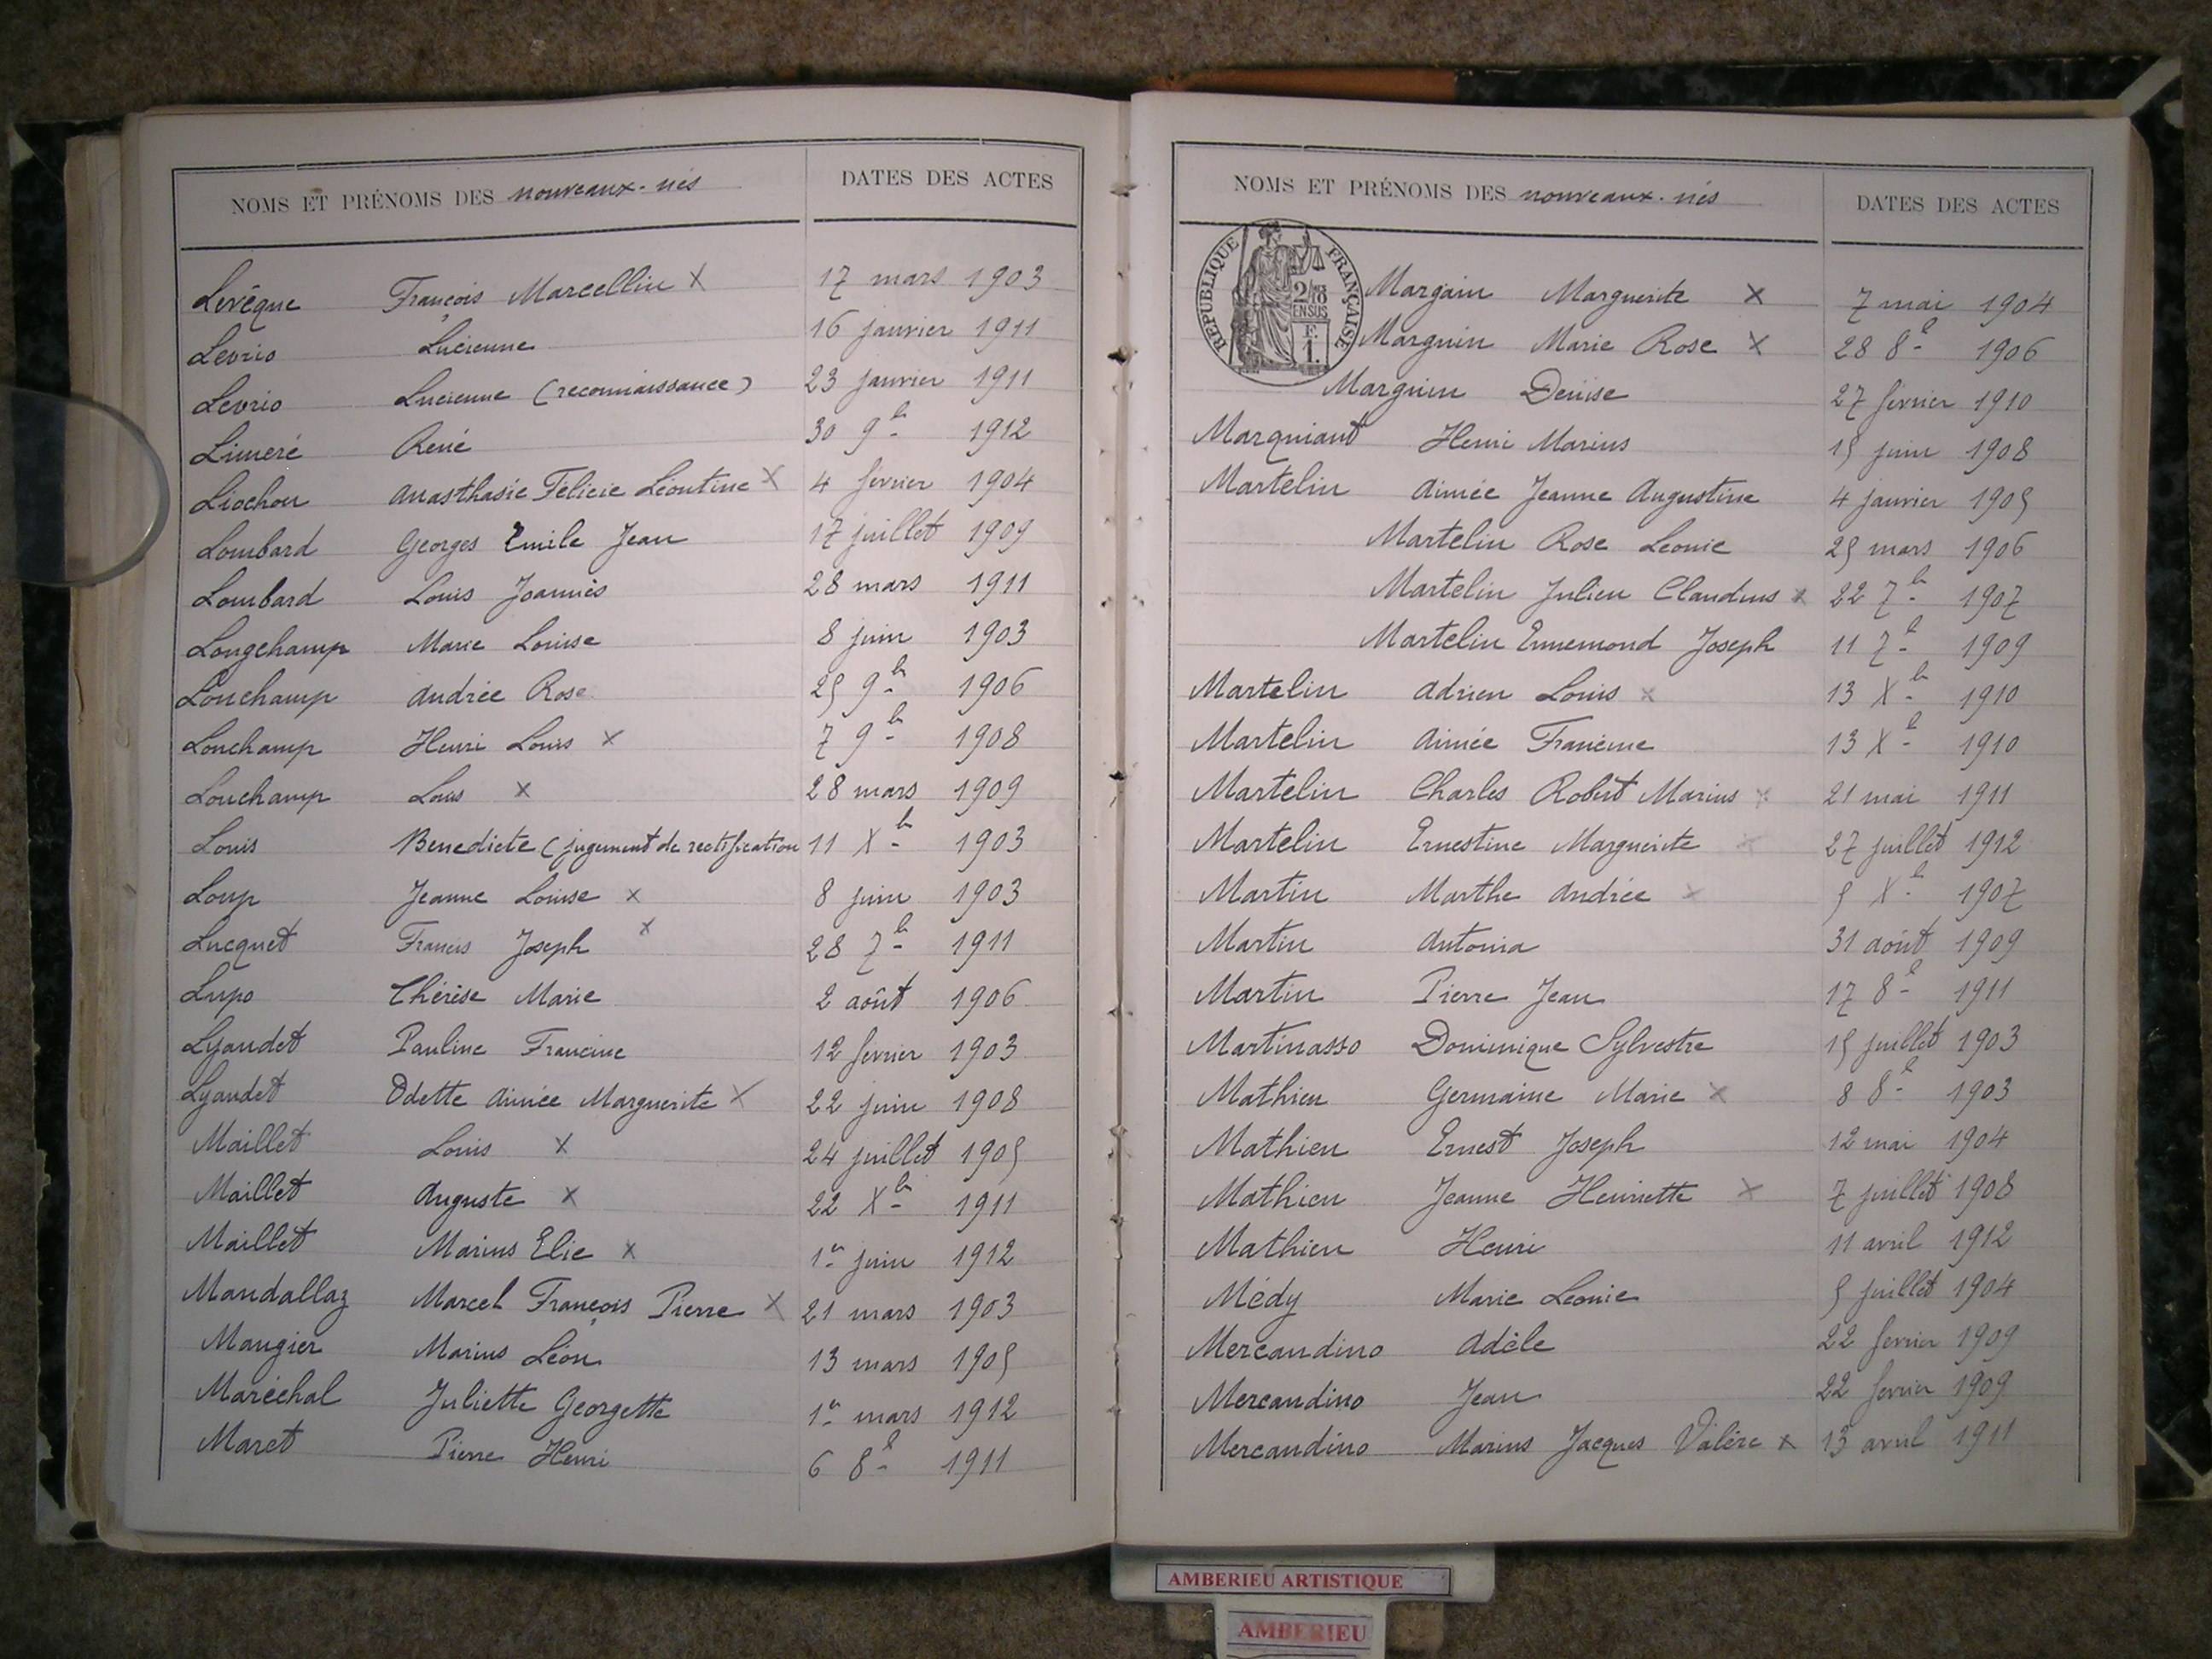 NOMS ET PRÉNOMS DES nouveaux-nés DATES DES ACTES
Levêque François Marcellin X 17 mars 1903
Levrio Lucienne 16 janvier 1911
Levrio Lucienne (reconnaissance) 23 janvier 1911
Limeré René 30 9b 1912
Liochon Anasthasie Félicie Léontine X 4 février 1904
Lombard Georges Emile Jean 17 juillet 1909
Lombard Louis Joannès 28 mars 1911
Longchamp Marie Louise 8 juin 1903
Lonchamp Andrée Rose 25 9b 1906
Lonchamp Henri Louis X 7 9b 1908
Lonchamp Louis X 28 mars 1909
Louis Benedicte (jugement de rectification 11 Xb 1903
Loup Jeanne Louise X 8 juin 1903
Lucquet Francis Joseph X 28 7b 1911
Lupo Thérèse Marie 2 août 1906
Lyaudet Pauline Francine 12 février 1903
Lyaudet Odette Aimée Marguerite X 22 juin 1908
Maillet Louis X 24 juillet 1905
Maillet Auguste X 22 Xb 1911
Maillet Marius Elie X 1er juin 1912
Mandallaz Marcel François Pierre X 21 mars 1903
Maugier Marius Léon 13 mars 1905
Maréchal Juliette Georgette 1er mars 1912
Maret Pierre Henri 6 8b 1911
NOMS ET PRÉNOMS DES nouveaux-nés DATES DES ACTES
RÉPUBLIQUE FRANÇAISE
2/10
EN SUS
F.
1.
Margain Marguerite X 7 mai 1904
Marguin Marie Rose X 28 8b 1906
Marguin Denise 27 février 1910
Marquiant Henri Marius 15 juin 1908
Martelin Aimée Jeanne Augustine 4 janvier 1905
Martelin Rose Leonie 25 mars 1906
Martelin Julien Claudius X 22 7b 1907
Martelin Ennemond Joseph 11 7b 1909
Martelin Adrien Louis X 13 Xb 1910
Martelin Aimée Francine 13 Xb 1910
Martelin Charles Robert Marius X 21 mai 1911
Martelin Ernestine Marguerite X 27 juillet 1912
Martin Marthe Andrée X 5 Xb 1907
Martin Antonia 31 août 1909
Martin Pierre Jean 17 8b 1911
Martinasso Dominique Sylvestre 15 juillet 1903
Mathieu Germaine Marie X 8 8b 1903
Mathieu Ernest Joseph 12 mai 1904
Mathieu Jeanne Henriette X 7 juillet 1908
Mathieu Henri 11 avril 1912
Médy Marie Leonie 5 juillet 1904
Mercandino Adèle 22 fevrier 1909
Mercandino Jean 22 fevrier 1909
Mercandino Marius Jacques Valère X 13 avril 1911
AMBERIEU ARTISTIQUE
AMBERIEU